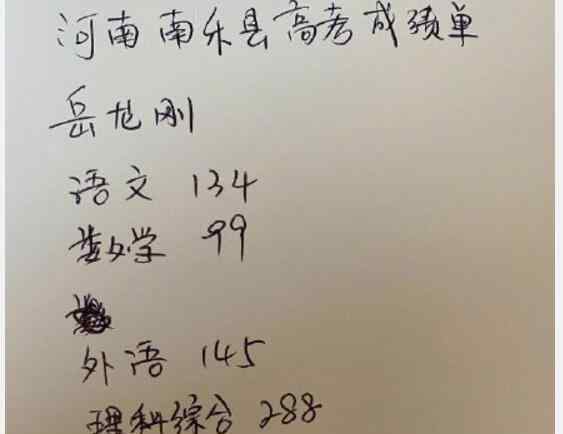 河南南乐县高考成绩单
岳龙刚
语文 134
数学 99
外语 145
理科综合 288